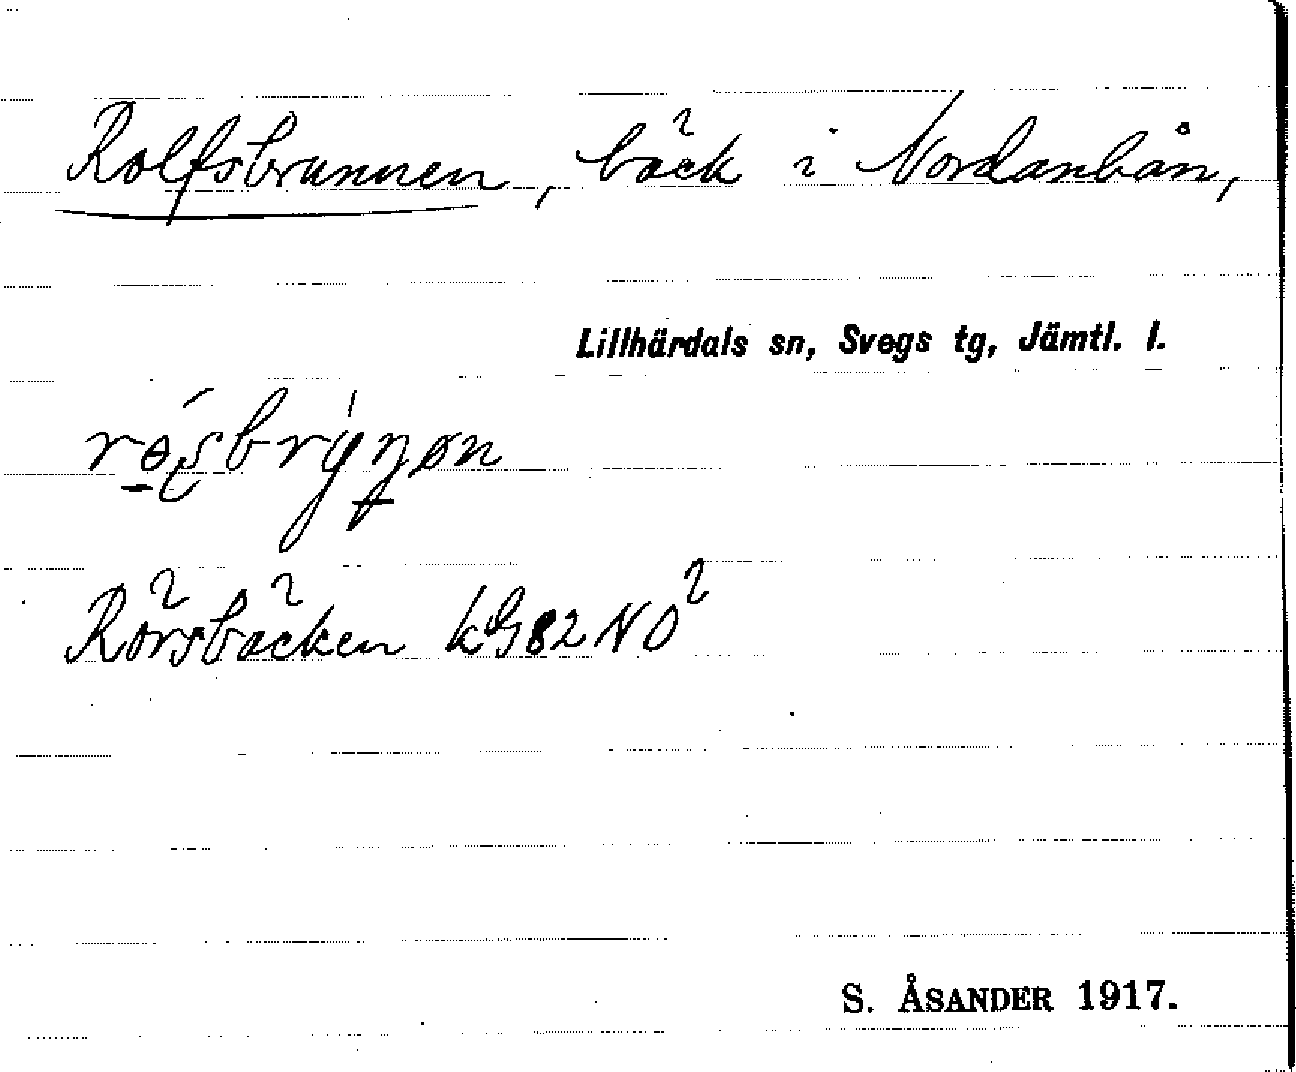 Rolfsbrunnen, bäck i Nordanbån,
Lillhärdals sn, Svegs tg, Jämtl. l.
Rörsbäcken kG82NO
S. ÅSANDER 1917.